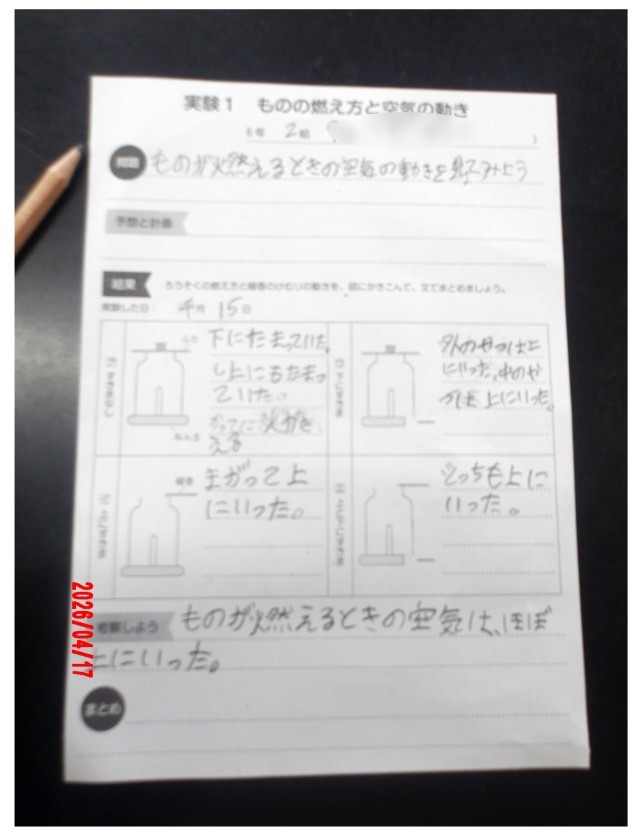 実験1 ものの燃え方と空気の動き
6年 2組 ( )
問題 ものが燃えるときの空気の動きを見てみよう
予想と計画
結果 ろうそくの燃え方と線香のけむりの動きを、図にかきこんで、文でまとめましょう。
実験した日: 4月 15日
ふた
下にたまっていた。
し上にもたまっ
ていた。
かってに火がき
える
ねん土
外のやつは上
にいった。中のや
つは上にいった。
線香
まがって上
にいった。
どっちも上に
いった。
考察しよう ものが燃えるときの空気は、ほぼ
上にいった。
まとめ
2026/04/17